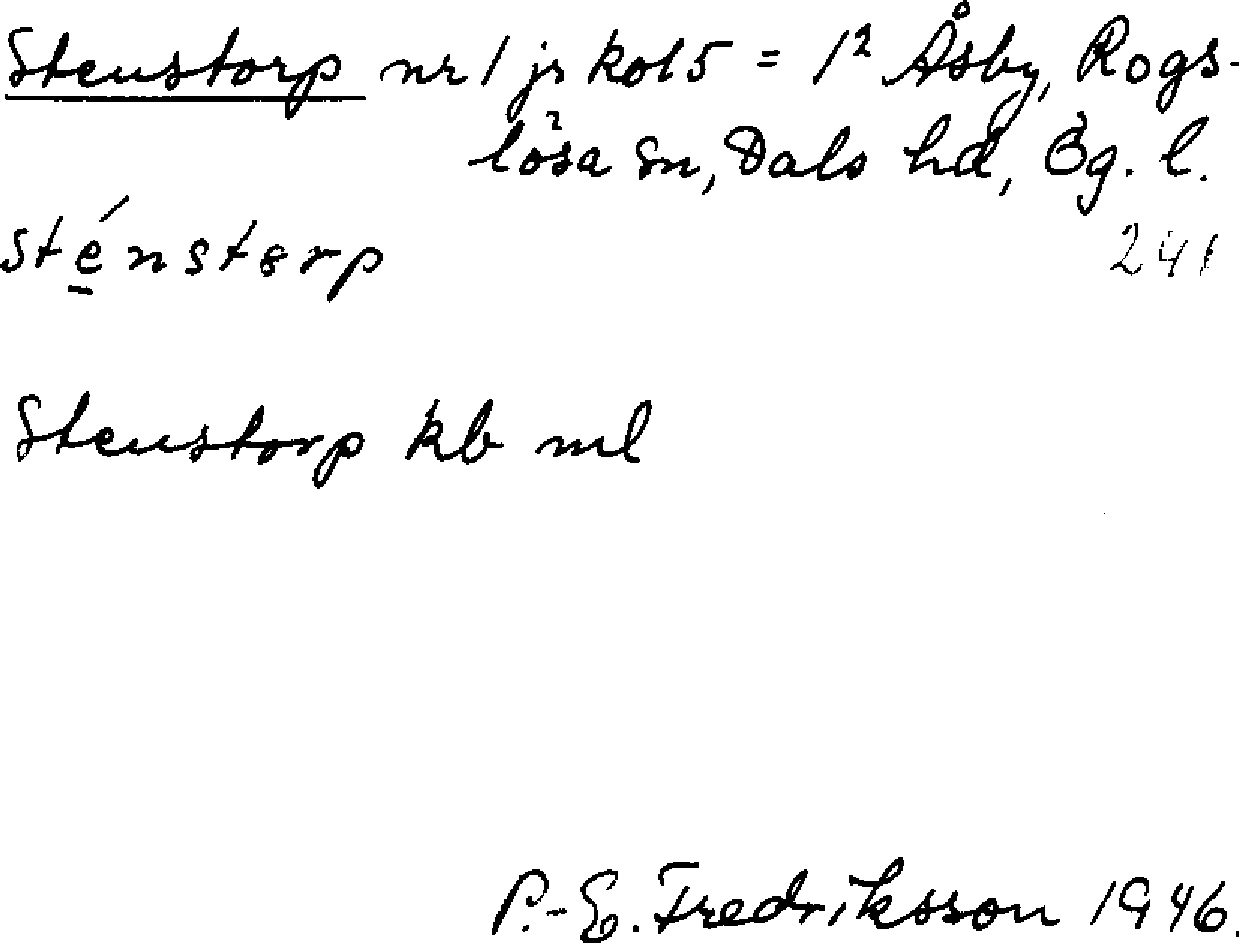 Stenstorp nr 1 jr kol 5 = 1² Åsby, Rogs-
lösa sn, Dals hd, Ög. l.
sténstorp 241
Stenstorp kb ml
P.-E. Fredriksson 1946.